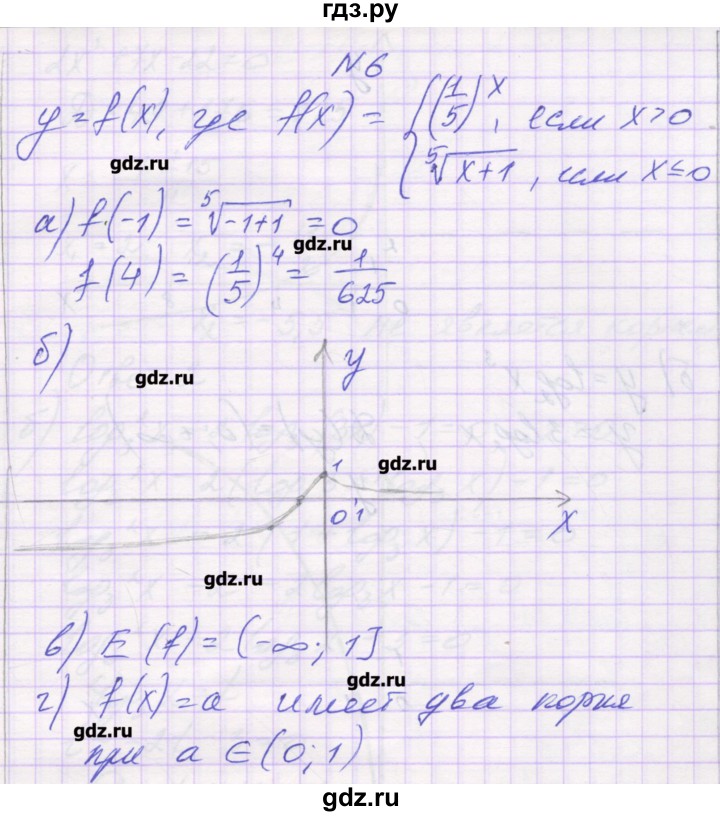 гдз.ру
№6
y = f(x), где f(x) = { (1/5)^x, если x>0
⁵√(x+1), если x≤0
gdz.ru
а) f(-1) = ⁵√(-1+1) = 0
gdz.ru
f(4) = (1/5)^4 = 1/625
б)
y
gdz.ru
1
gdz.ru
0 1
x
gdz.ru
в) E(f) = (-∞; 1]
gdz.ru
г) f(x) = a имеет два корня
gdz.ru
при a ∈ (0; 1)
gdz.ru